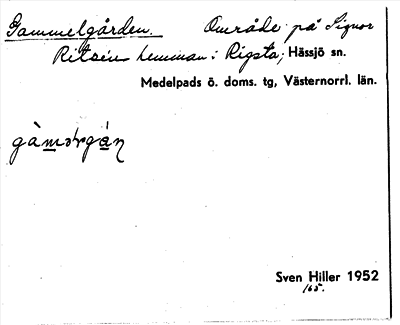 Gammelgården. Område på Signor
Ritzéns hemman i Rigsta, Hässjö sn.
Medelpads ö. doms. tg, Västernorrl. län.
gàməɫgàɳ
Sven Hiller 1952
165.